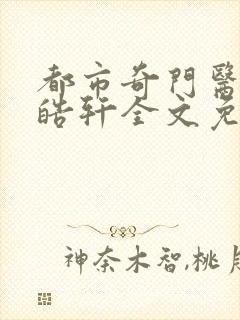 都市奇門醫
皓轩全文免
神奈木智,桃月